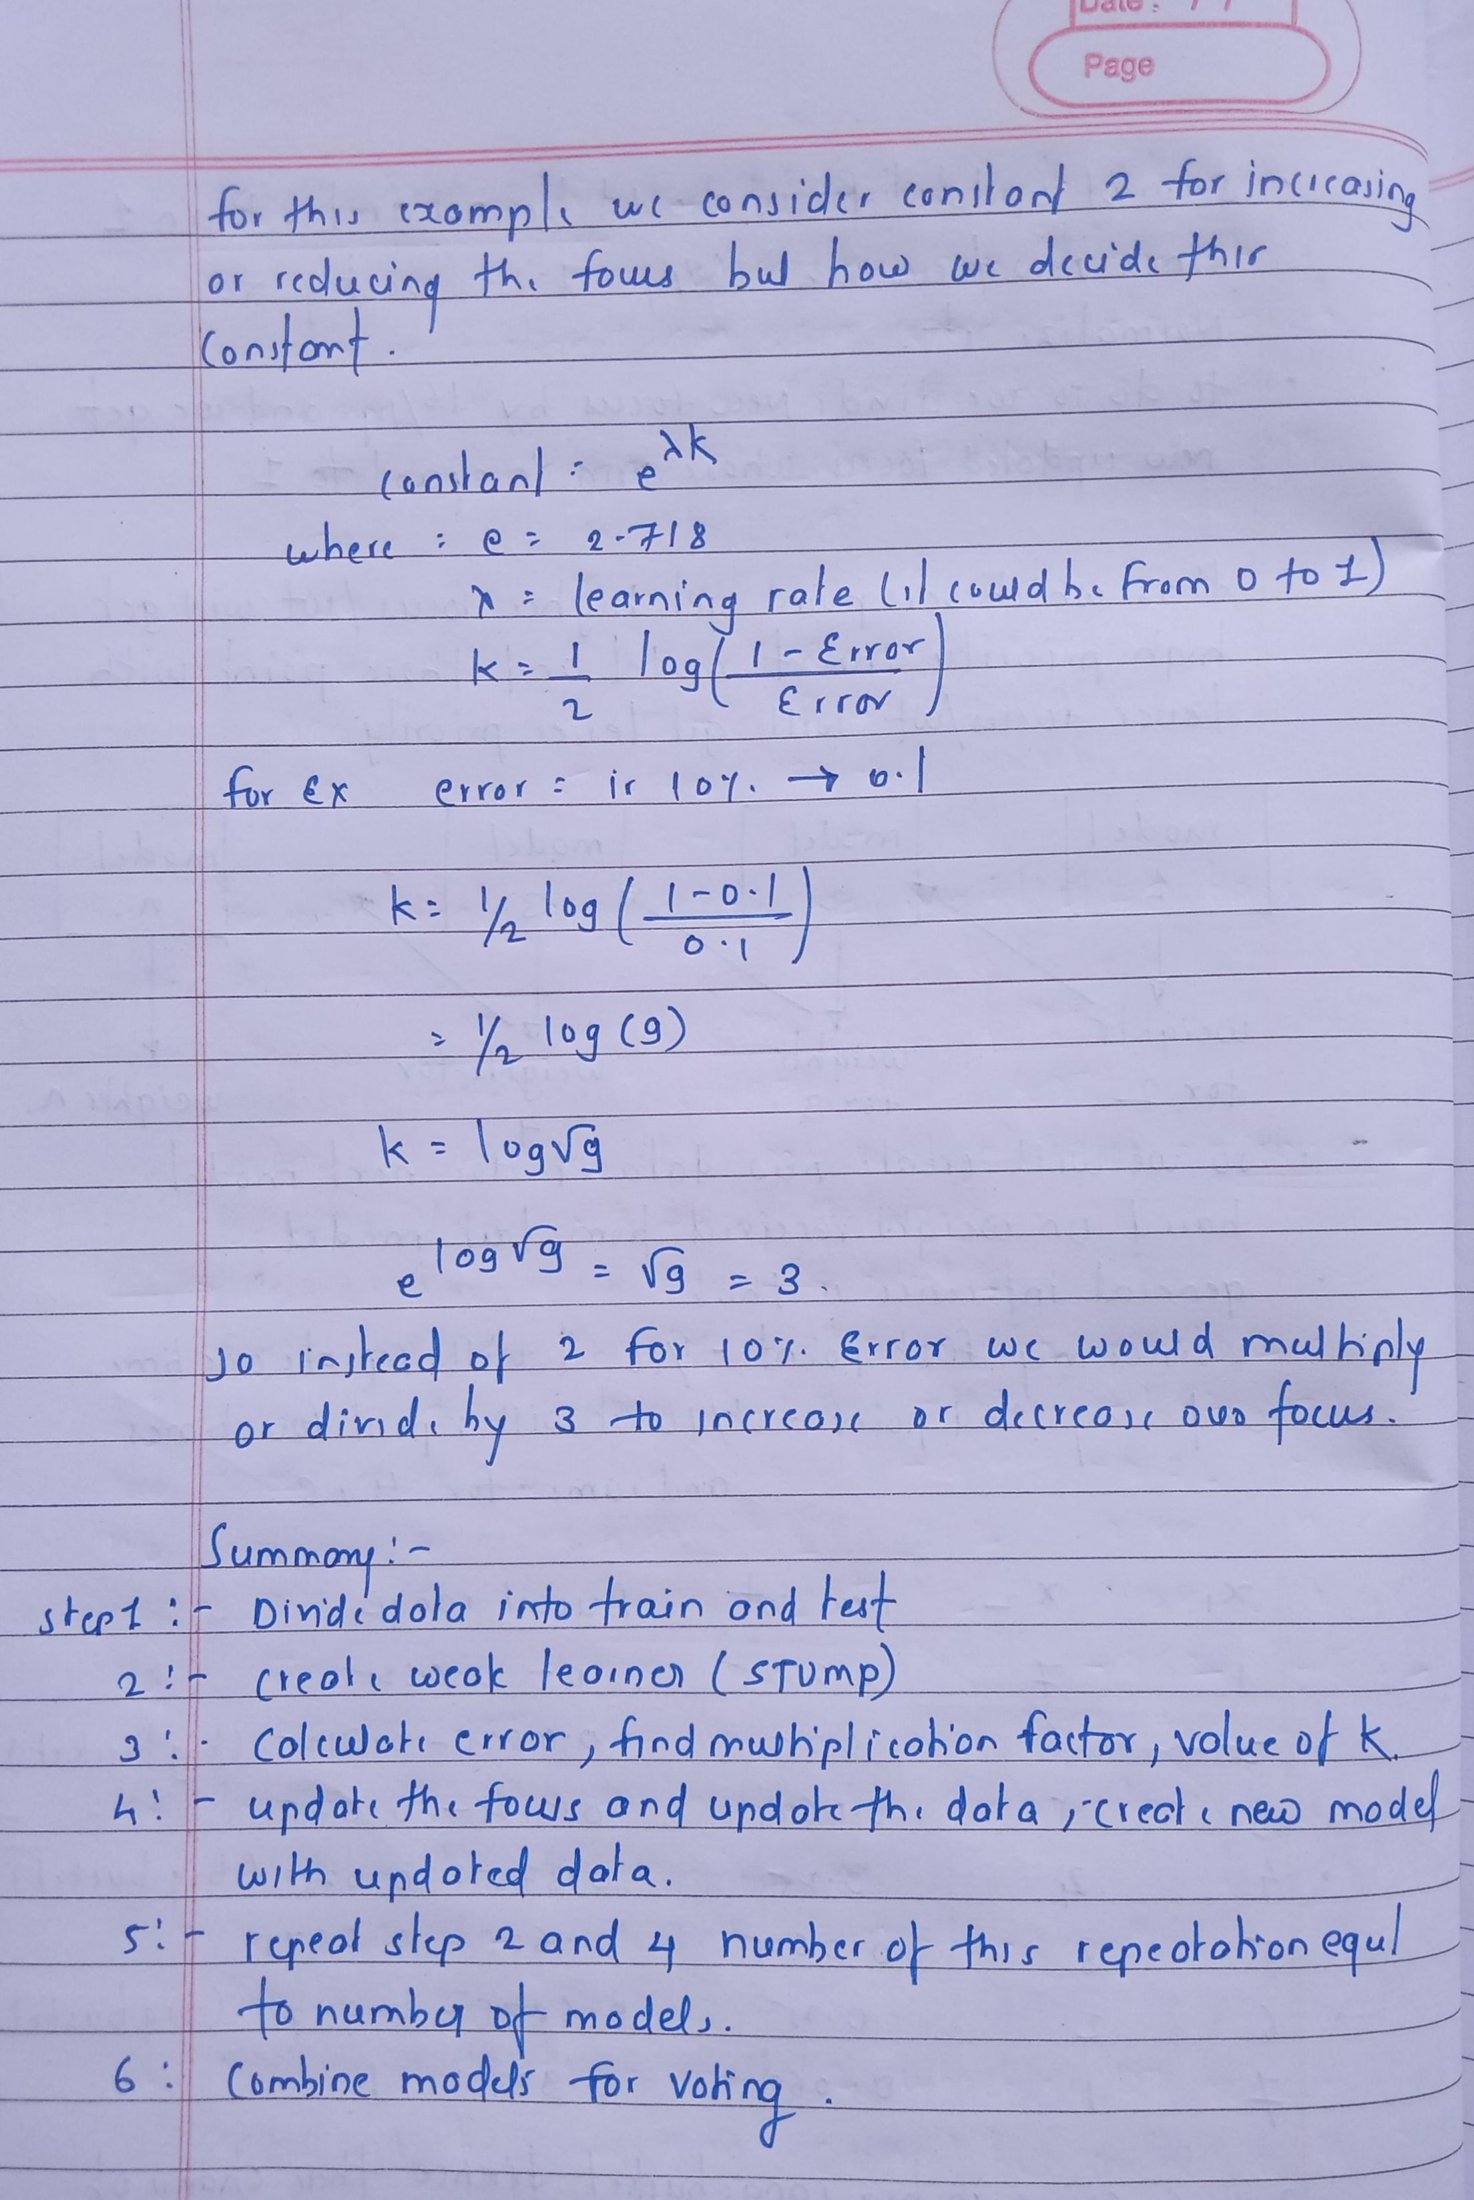 Date : / /
Page
for this example we consider constant 2 for increasing
or reducing the focus but how we decide this
constant.
constant = e^λk
where : e = 2.718
λ = learning rate (it could be from 0 to 1)
k = 1/2 log(1 - Error / Error)
for Ex error = is 10% → 0.1
k = 1/2 log (1-0.1 / 0.1)
= 1/2 log (9)
k = log√9
e^log√9 = √9 = 3.
so instead of 2 for 10% Error we would multiply
or divide by 3 to increase or decrease our focus.
Summary :-
step 1 :- Divide data into train and test
2 :- create weak learner (STUMP)
3 :- Calculate error, find multiplication factor, value of k.
4 :- update the focus and update the data, create new model
with updated data.
5 :- repeat step 2 and 4 number of this repeatation equl
to number of models.
6 : Combine models for voting.